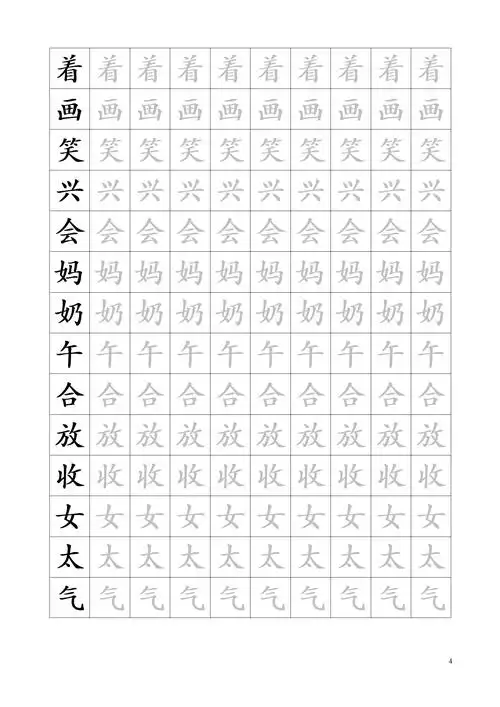 着着着着着着着着着着
画画画画画画画画画画
笑笑笑笑笑笑笑笑笑笑
兴兴兴兴兴兴兴兴兴兴
会会会会会会会会会会
妈妈妈妈妈妈妈妈妈妈
奶奶奶奶奶奶奶奶奶奶
午午午午午午午午午午
合合合合合合合合合合
放放放放放放放放放放
收收收收收收收收收收
女女女女女女女女女女
太太太太太太太太太太
气气气气气气气气气气
4